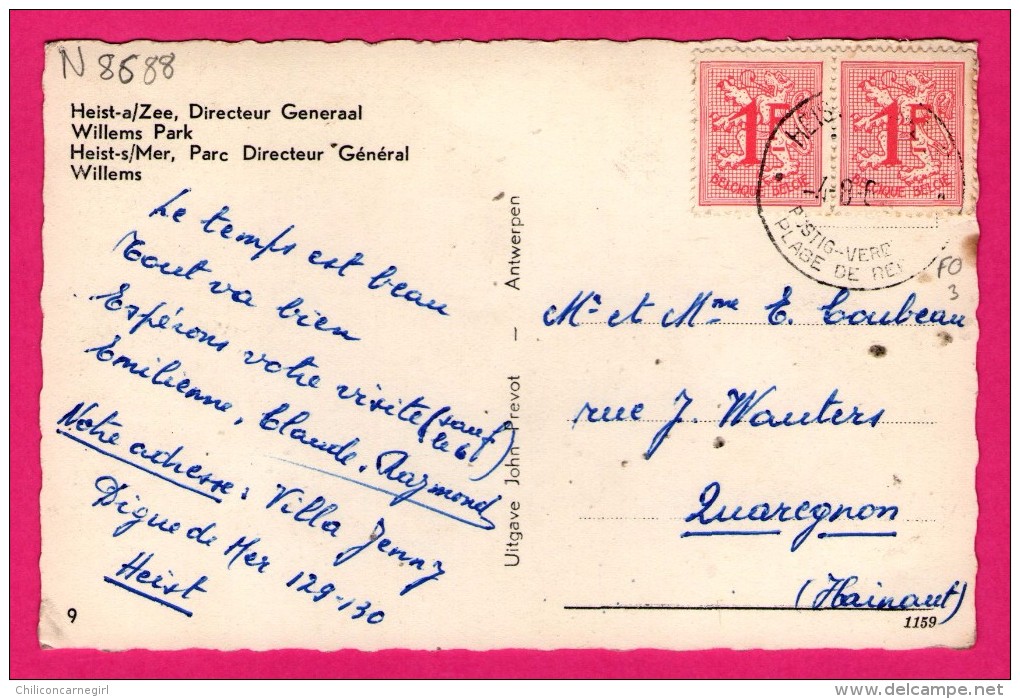 N 8688
Heist-a/Zee, Directeur Generaal
Willems Park
Heist-s/Mer, Parc Directeur Général
Willems
Le temps est beau
Tout va bien
Espérons votre visite (sauf
le 6)
Emilienne, Claude, Raymond
Notre adresse : Villa Jenny
Digue de Mer 129-130
Heist
9
Uitgave John Prevot — Antwerpen
1F
BELGIQUE·BELGIË
1F
BELGIQUE·BELGIË
HEIS
-4 -9
PLAGE DE
FO
3
Mr et Mme E. Coubeau
rue J. Wauters
Quaregnon
(Hainaut)
1159
Chiliconcarnegirl
delcampe.net